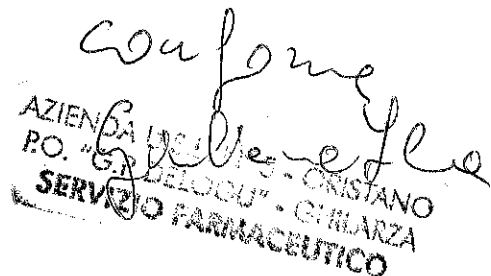 conforme
AZIENDA - ORISTANO
P.O. "G.P. DELOGU" - GHILARZA
SERVIZIO FARMACEUTICO